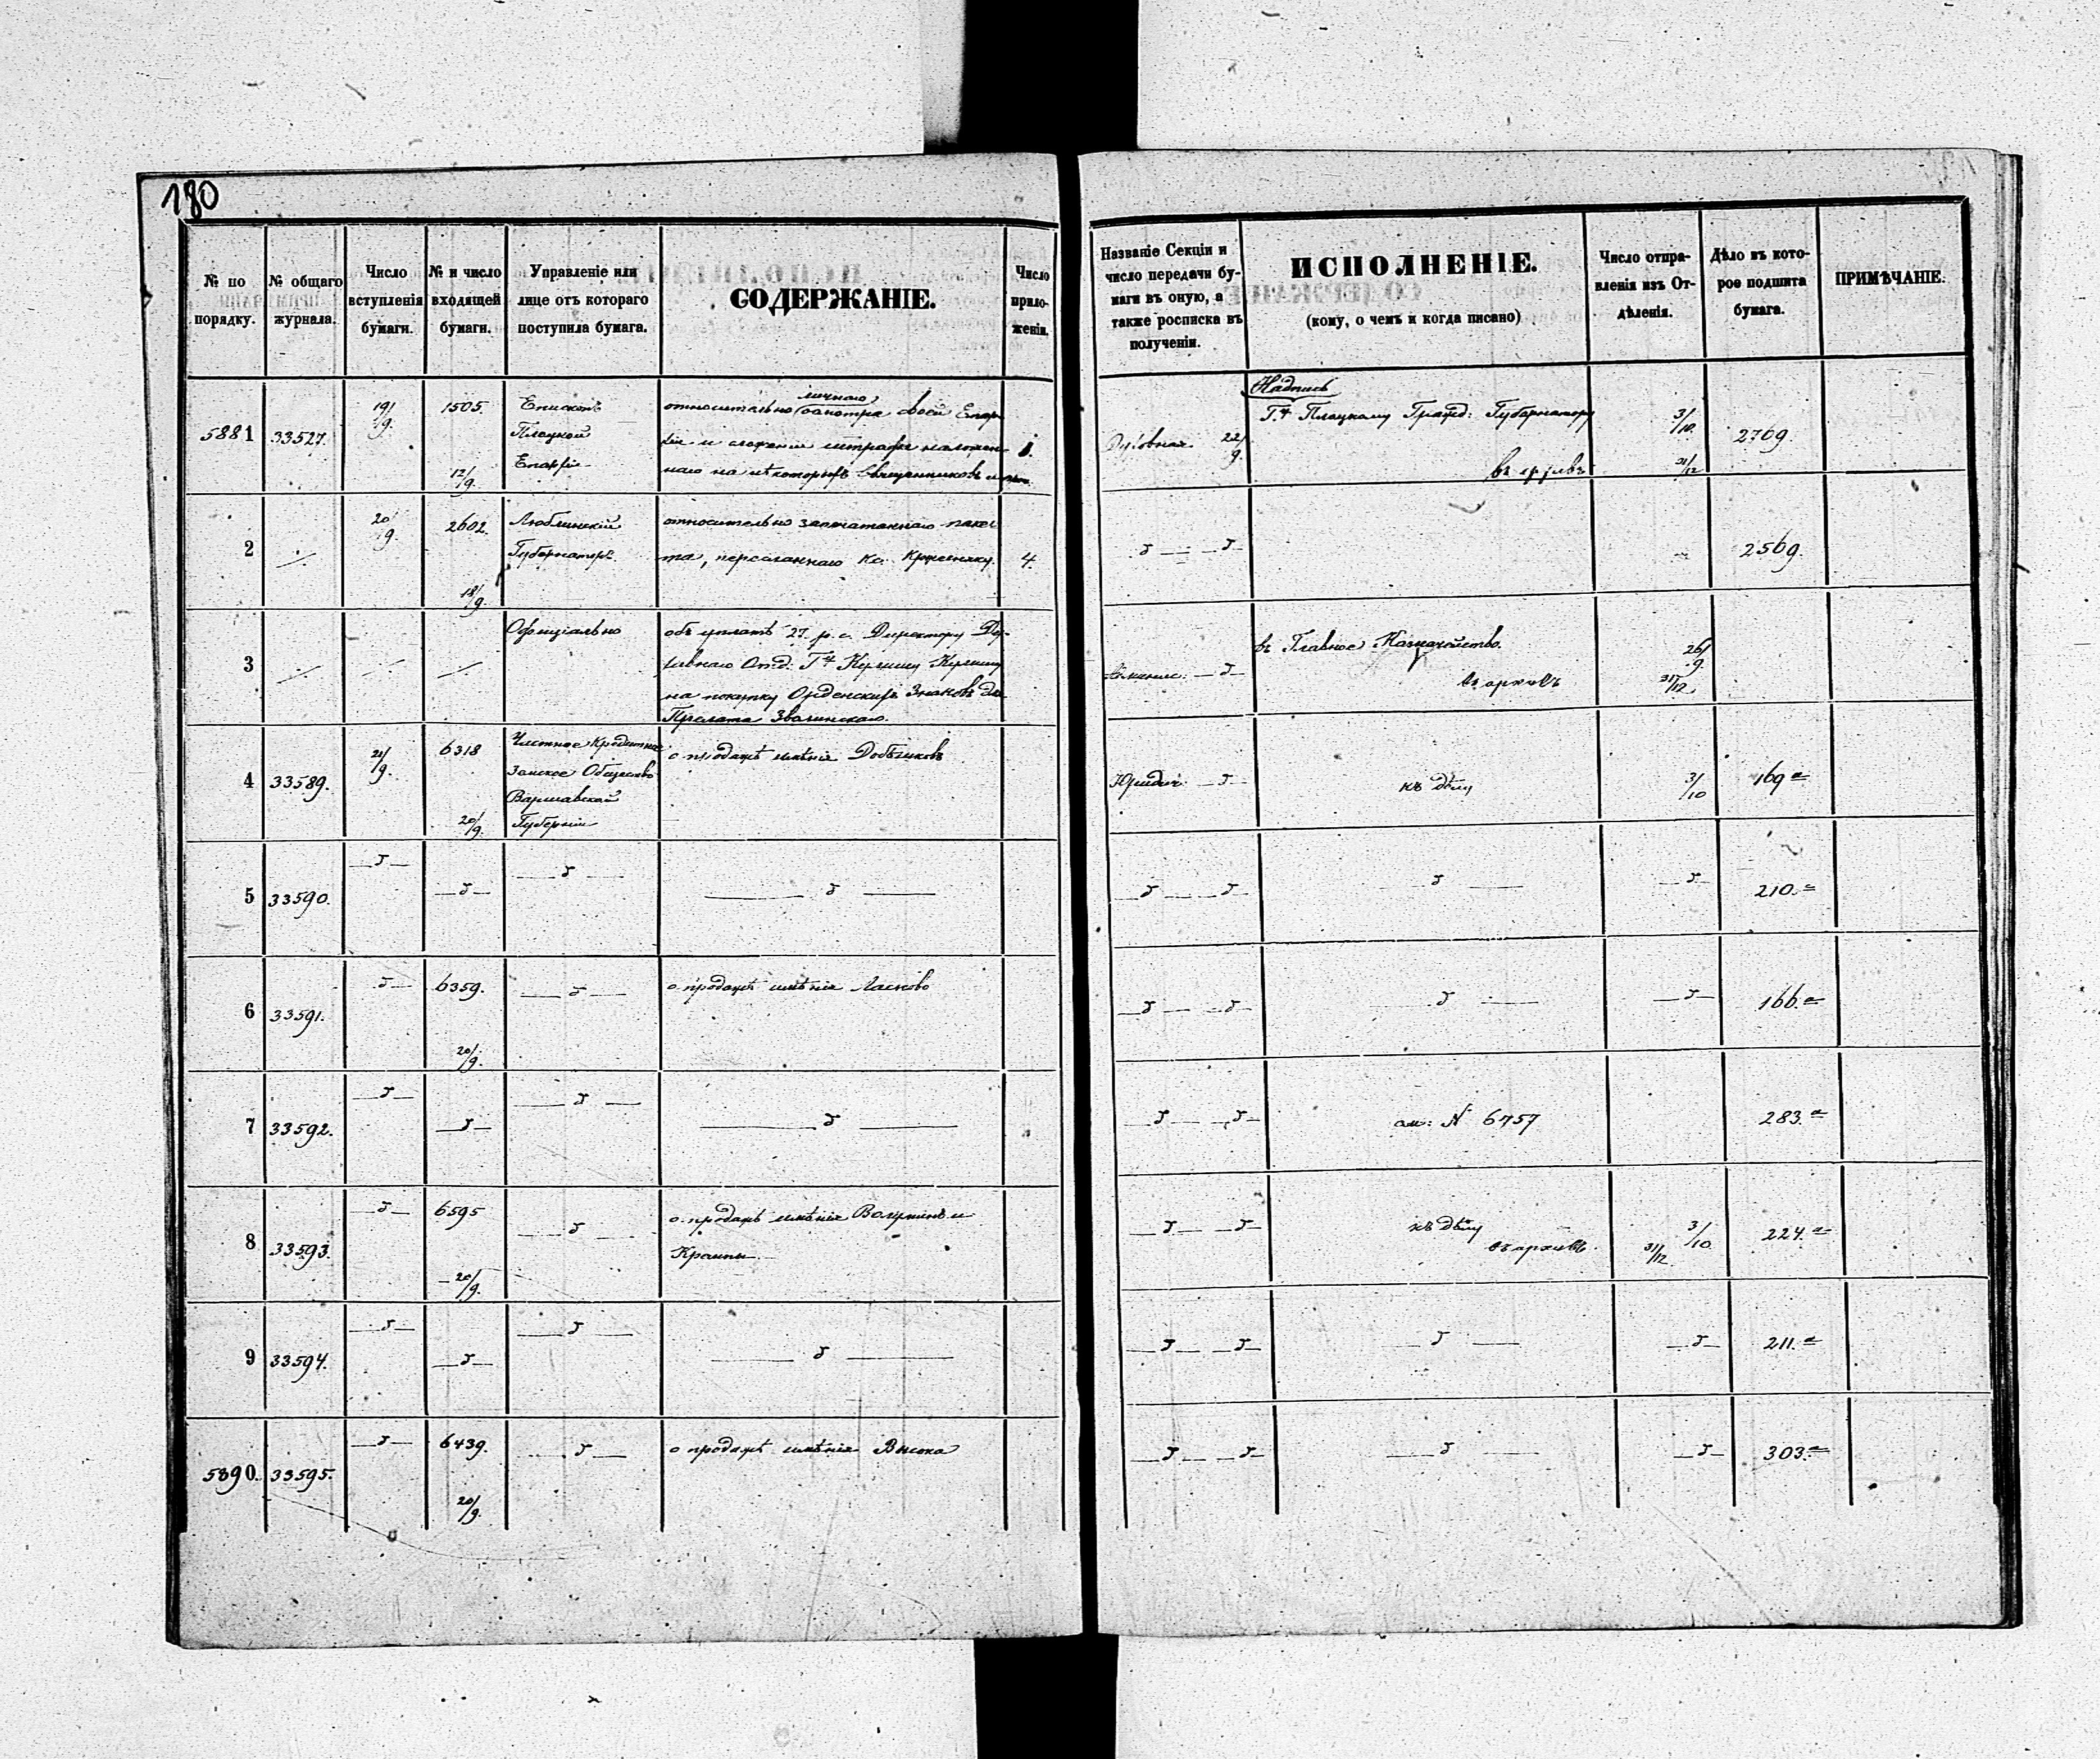 180
№ по порядку.
№ общаго журнала.
Число вступленія бумаги.
№ и число входящей бумаги.
Управленіе или лице отъ котораго поступила бумага.
СОДЕРЖАНІЕ.
Число приложеній.
Названіе Секціи и число передачи бумаги въ оную, а также росписка въ полученіи.
ИСПОЛНЕНІЕ.
(кому, о чемъ и когда писано)
Число отправленія изъ Отдѣленія.
Дѣло въ которое подшита бумага.
ПРИМѢЧАНІЕ.
5881
33527.
19/9.
1505.
12/9.
Епископъ
Плоцкой
Епархіи
личнаго
относительно осмотра своей Епар-
хіи и сложенія штрафа наложен-
наго на нѣкоторыхъ Священниковъ и
1.
Духовная. 22/9.
Надпись
Г.ну Плоцкому Гражд: Губернатору
въ архивъ
3/10.
31/12
2769.
2
20/9.
2602.
18/9.
Люблинскій
Губернаторъ.
относительно запечатаннаго паке-
та, пересланнаго Кс.
4.
2569.
3
Офиціально
объ уплатѣ 27. р. с. Директору
на покупку Орденскихъ Знаковъ для
Прелата
въ Главное Казначейство.
въ архивъ
26/9.
31/12.
4
33589.
21/9.
6318
20/9.
Частное Кредитное
Земское Общество
Варшавской
Губерніи
о продажѣ имѣнія
Юридич:
къ дѣлу
3/10
169 а
5
33590.
210. а
6
33591.
6359.
20/9.
о продажѣ имѣнія Ласково
166. а
7
33592.
см: № 6757
283. а
8
33593.
6595
20/9.
о продажѣ имѣнія
къ дѣлу
въ архивъ.
31/12
3/10
224. а
9
33594.
211. а
5890.
33595.
6439.
20/9.
о продажѣ имѣнія Высока
303. а